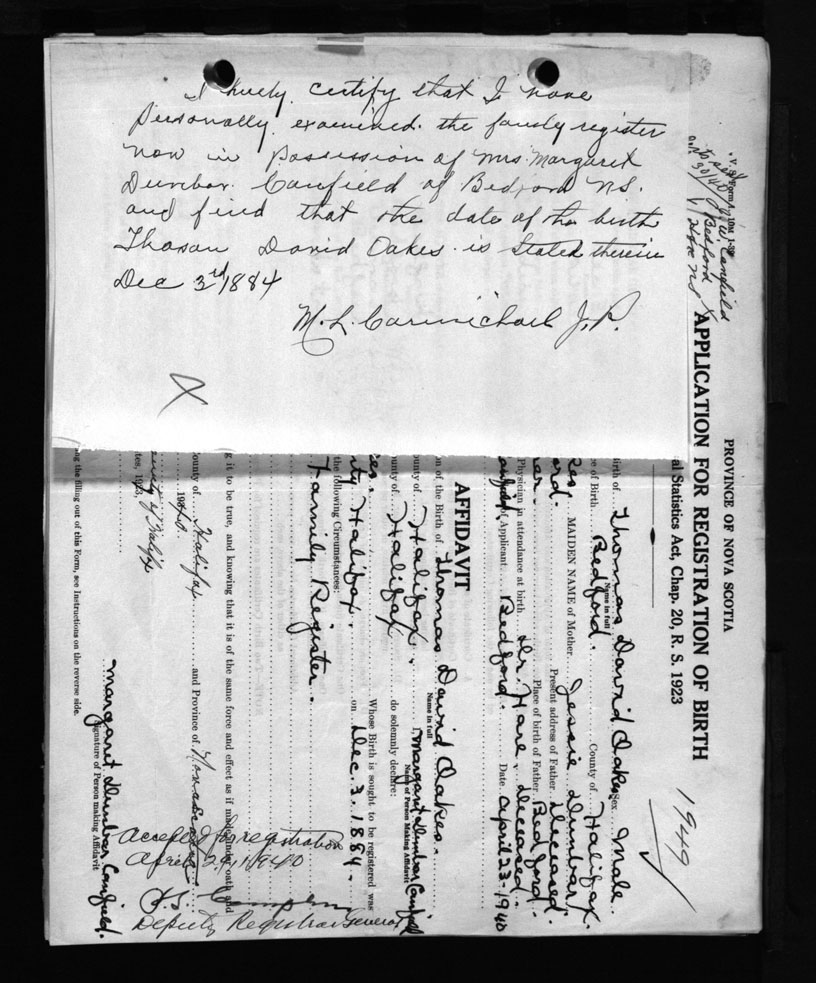 I hereby certify that I have
personally examined the family register
now in possession of Mrs. Margaret
Dunbar Canfield of Bedford N.S.
and find that the date of the birth
Thomas David Oakes is stated therein
Dec 3rd 1884
M. L. Carmichael J. P.
X
W. Canfield
Bedford
Hfx NS
PROVINCE OF NOVA SCOTIA
APPLICATION FOR REGISTRATION OF BIRTH
al Statistics Act, Chap. 20, R. S. 1923
1949
irth of Thomas David Oakes Sex Male
Name in full
ce of Birth Bedford. County of Halifax.
kes MAIDEN NAME of Mother Jessie Dunbar
ord. Present address of Father Deceased.
er. Place of birth of Father Bedford.
Physician in attendance at birth Dr. Hare, Deceased.
of Applicant Bedford. Date April 23-1940
AFFIDAVIT
on of the Birth of Thomas David Oakes.
Name in full
ounty of Halifax. I, Margaret Dunbar Canfield
Name of Person Making Affidavit
ounty of Halifax do solemnly declare:
Whose Birth is sought to be registered was
nty Halifax. on Dec. 3. 1884.
the following Circumstances:
Family Register.
g it to be true, and knowing that it is of the same force and effect as if made under oath and
ounty of Halifax and Province of Nova Scotia
1940
tes, 1923.
Margaret Dunbar Canfield.
Signature of Person making Affidavit
ng the filling out of this Form, see Instructions on the reverse side.
Accepted for registration
April 29, 1940
Deputy Registrar General